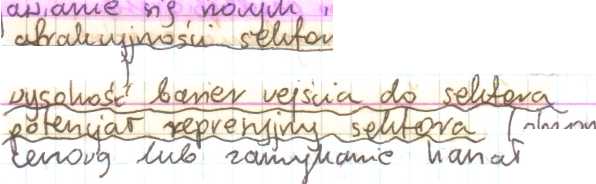 się nowym
atrakcyjności sektor
wysokość barier wejścia do sektora
potencjał represyjny sektora
cenową lub zamykanie kanał